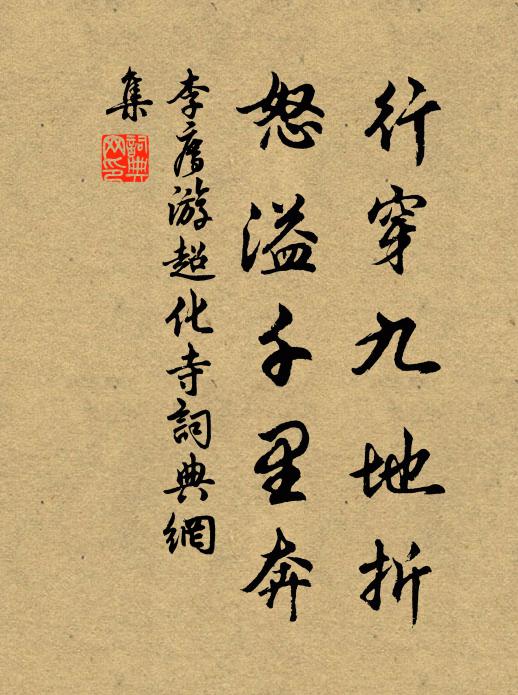 行穿九地折
怒溢千里奔
李廌游超化寺詞典網
集
詞典网印